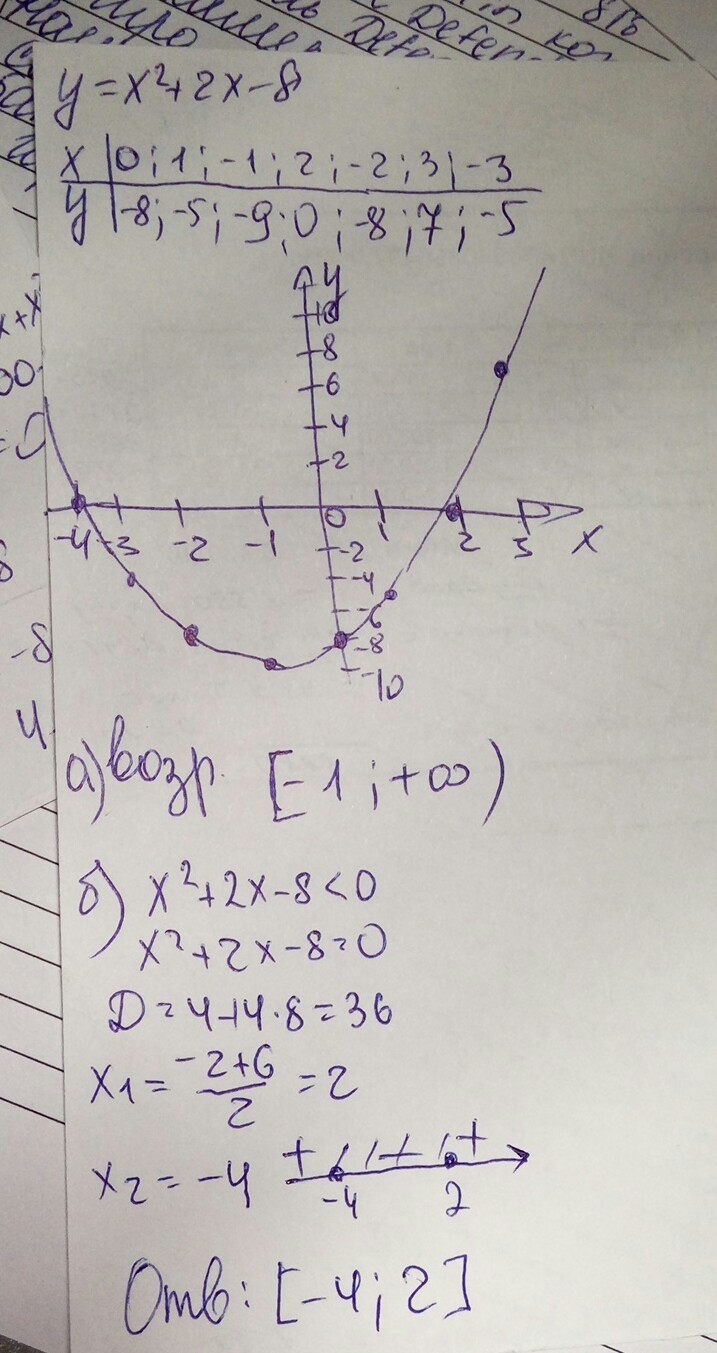 y = x²+2x-8
x | 0; 1; -1; 2; -2; 3; -3
y | -8; -5; -9; 0; -8; 7; -5
y
10
8
6
4
2
-4 -3 -2 -1 0 1 2 3 x
-2
-4
-6
-8
-10
а) возр. [-1; +∞)
б) x²+2x-8<0
x²+2x-8=0
D=4+4·8=36
x1 = -2+6/2 = 2
x2 = -4
+ - +
-4 2
Отв: [-4; 2]